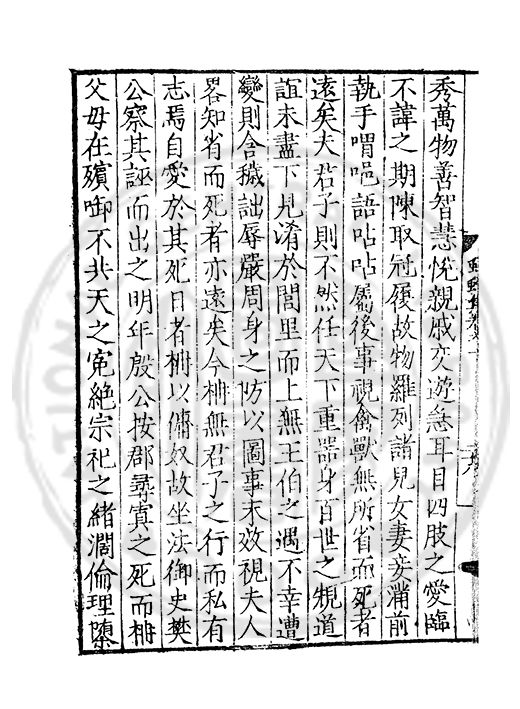 秀萬物善智慧悅親戚交遊急耳目四肢之愛臨
不諱之期陳取冠履故物羅列諸兒女妻妾滿前
執手喟唈語呫呫屬後事視禽獸無所省而死者
遠矣夫君子則不然任天下重器身百世之䂓道
誼未盡下見淆於閭里而上無王伯之遇不幸遭
變則含穢詘辱嚴周身之防以圖事末效視夫人
畧知省而死者亦遠矣今柟無君子之行而私有
志焉自愛於其死日者柟以傭奴故坐法御史樊
公察其誣而出之明年殷公按郡尋實之死而柟
父母在殯啣不共天之寃絶宗祀之緒濶倫理隳